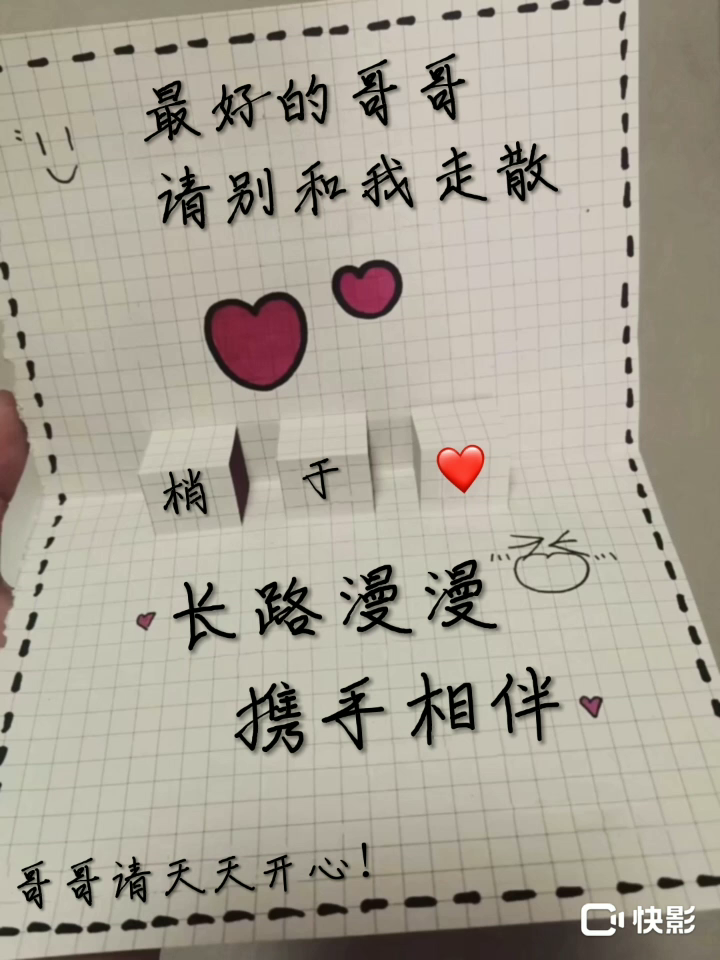 最好的哥哥
请别和我走散
梢于❤️
长路漫漫
携手相伴
哥哥请天天开心！
快影